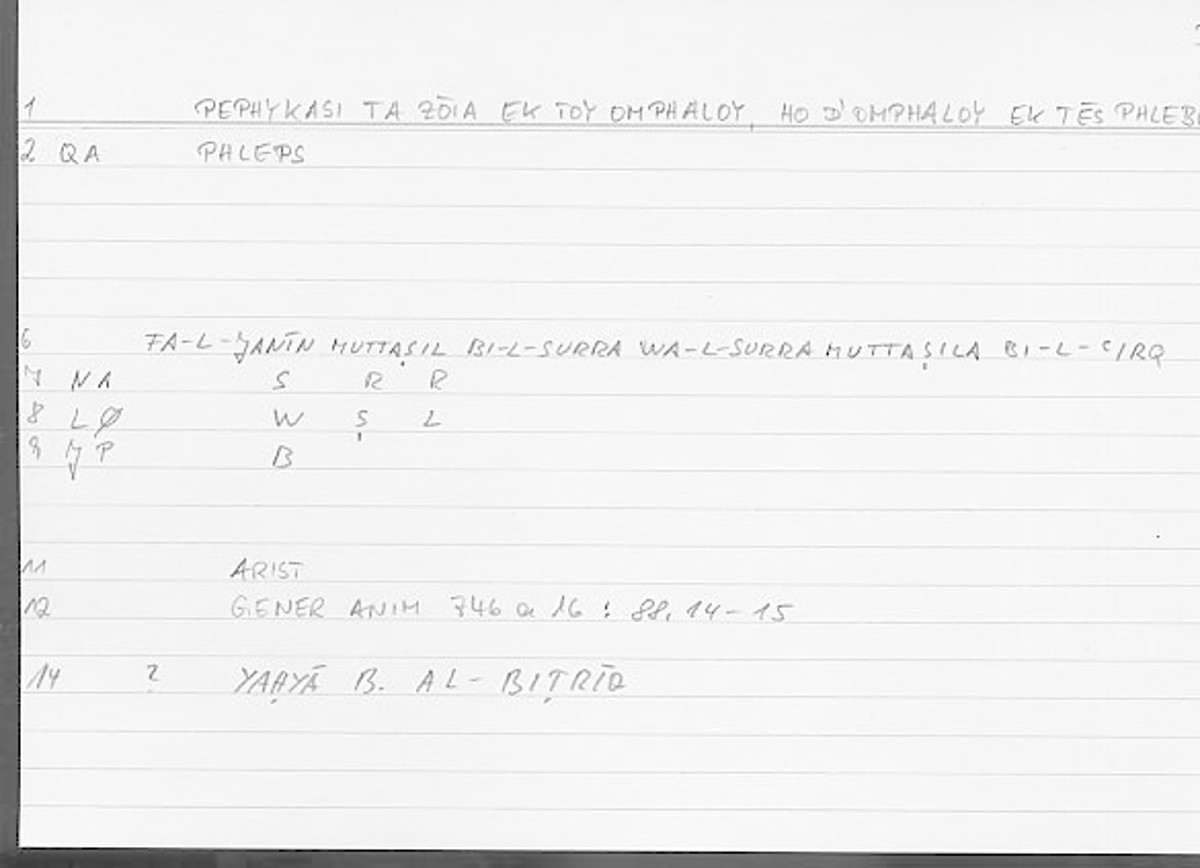 1 PEPHYKASI TA ZŌIA EK TOY OMPHALOY, HO D'OMPHALOY EK TĒS PHLEB
2 QA PHLEPS
6 FA-L-JANĪN MUTTAṢIL BI-L-SURRA WA-L-SURRA MUTTAṢILA BI-L-ʿIRQ
7 NA S R R
8 LØ W Ṣ L
9 JP B
11 ARIST
12 GENER ANIM 746 a 16 : 88, 14-15
14 ? YAḤYĀ B. AL-BIṬRĪQ